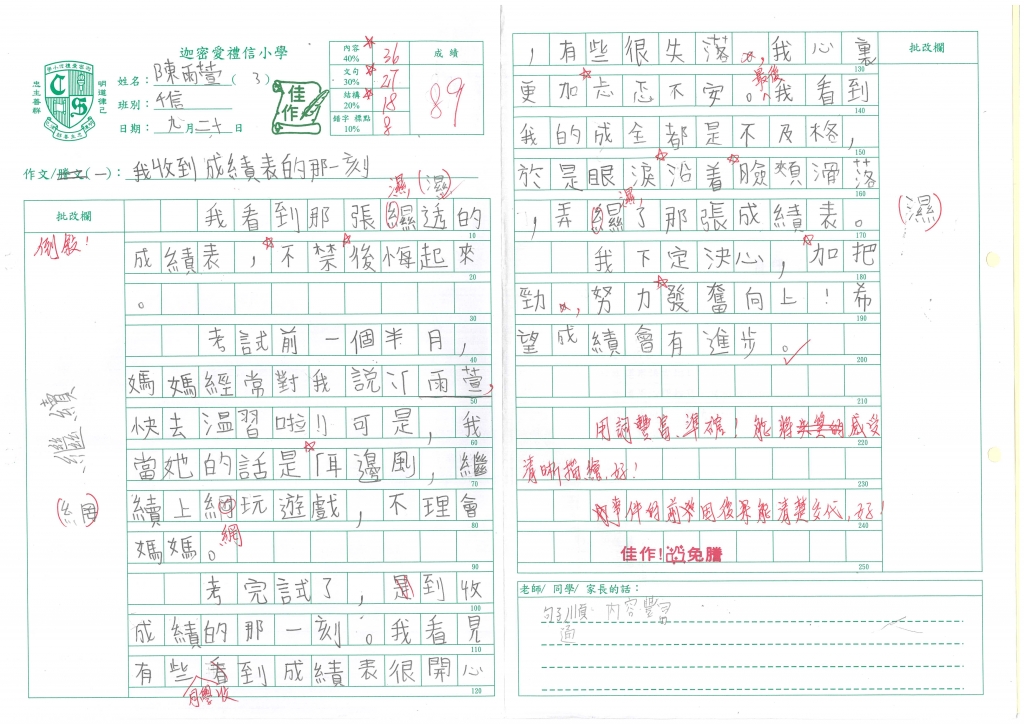 迦密愛禮信小學
姓名：陳雨萱（3）
班別：4信
日期：九月二十日
忠主善群
明道律己
佳作
內容 40% 36
文句 30% 27
結構 20% 18
錯字 標點 10% 8
成績
89
作文/謄文(一)：我收到成績表的那一刻
濕，(濕)
批改欄
倒敍！
繼續
(網)
我看到那張濕透的
成績表，不禁後悔起來
。
考試前一個半月，
媽媽經常對我說：「雨萱，
快去溫習啦！」可是，我
當她的話是「耳邊風」，繼
續上網玩遊戲，不理會
媽媽。
網
考完試了，到收
成績的那一刻。我看見
有些看到成績表很開心
同學收
10
20
30
40
50
60
70
80
90
100
110
120
批改欄
，有些很失落，我心裏
更加忐忑不安。最後，我看到
我的成全都是不及格，
於是眼淚沿着臉頰滑落
，弄濕了那張成績表。
濕，
(濕)
我下定決心，加把
勁，努力發奮向上！希
望成績會有進步。
130
140
150
160
170
180
190
200
210
220
230
240
250
用詞豐富、準確！能將感受
清晰描繪，好！
事件的前因後果能清楚交代，好！
佳作！免騰
老師/ 同學/ 家長的話：
句子順 內容豐
通